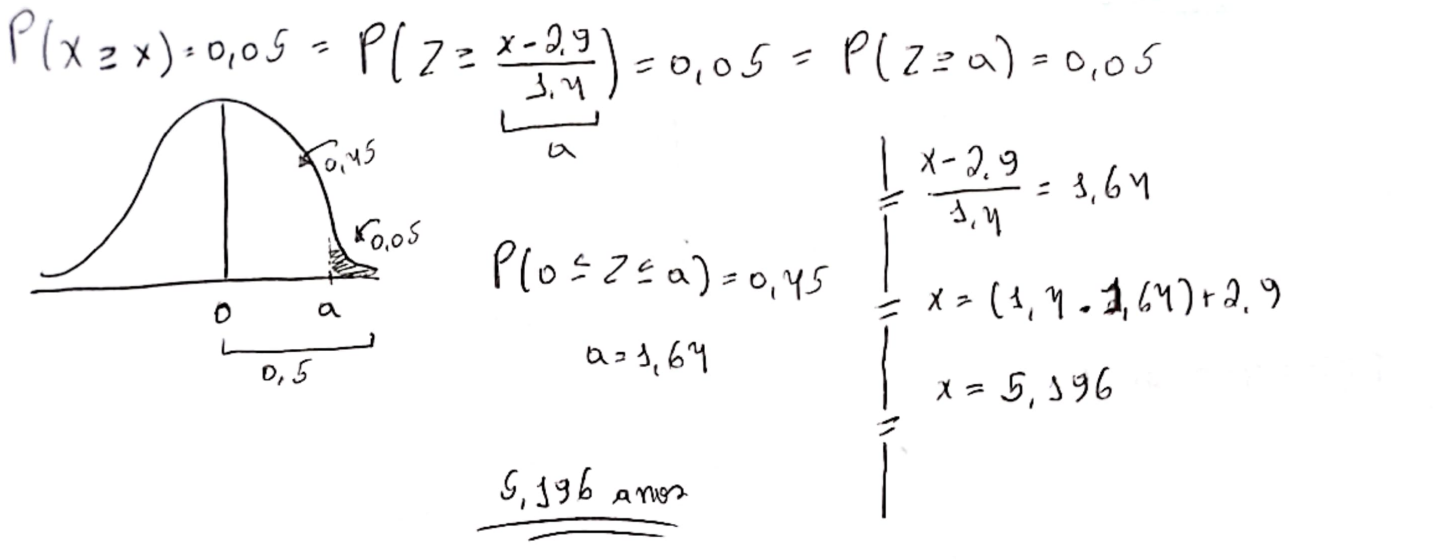 P(X ≥ x) = 0,05 = P(Z ≥ x - 2,9 / 1,4) = 0,05 = P(Z ≥ a) = 0,05
a
0,45
0,05
0 a
0,5
P(0 ≤ Z ≤ a) = 0,45
a = 1,64
x - 2,9 / 1,4 = 1,64
x = (1,4 . 1,64) + 2,9
x = 5,196
5,196 anos